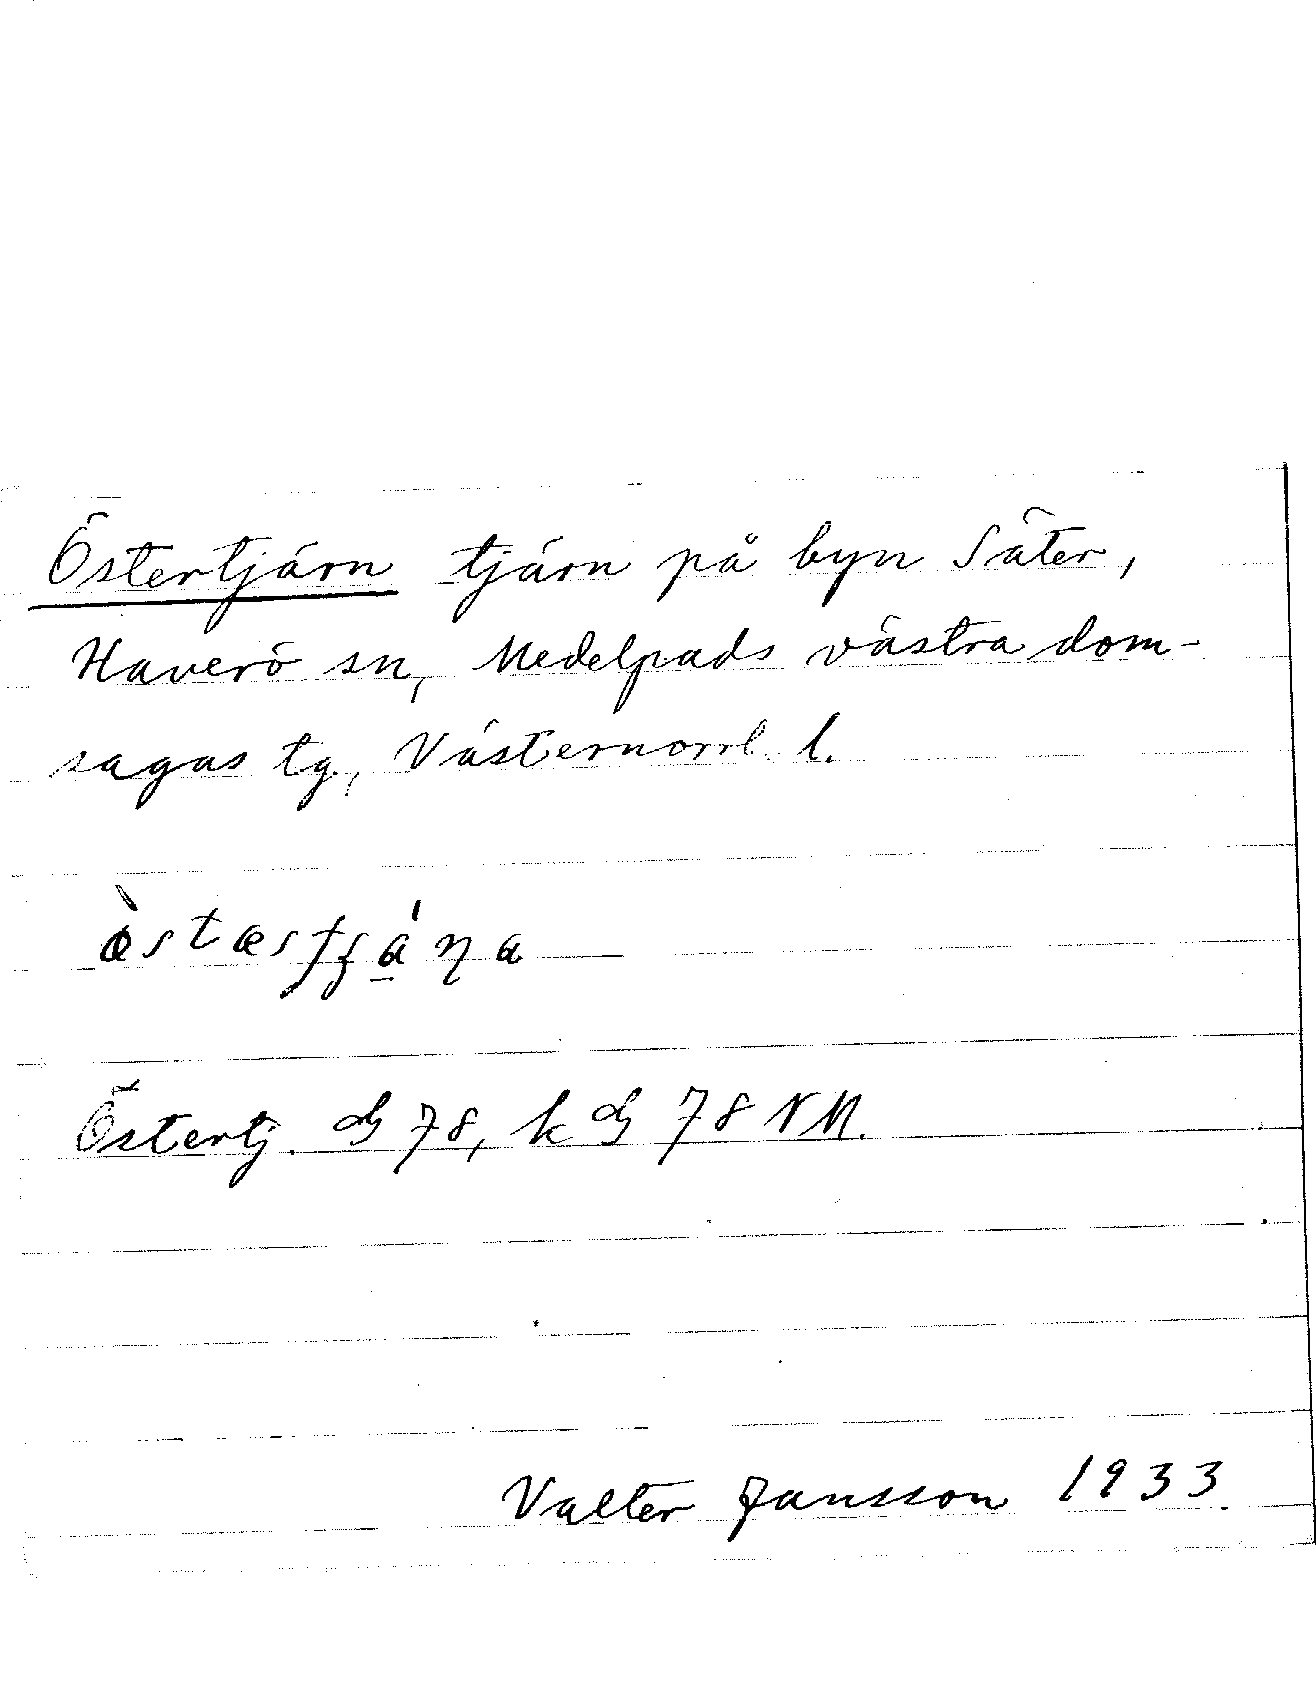 Östertjärn tjärn på byn Säter,
Haverö sn, Medelpads västra dom-
sagas tg., Västernorrl. l.
Östertj. 78, k 78 NM.
Valter Jansson 1933.